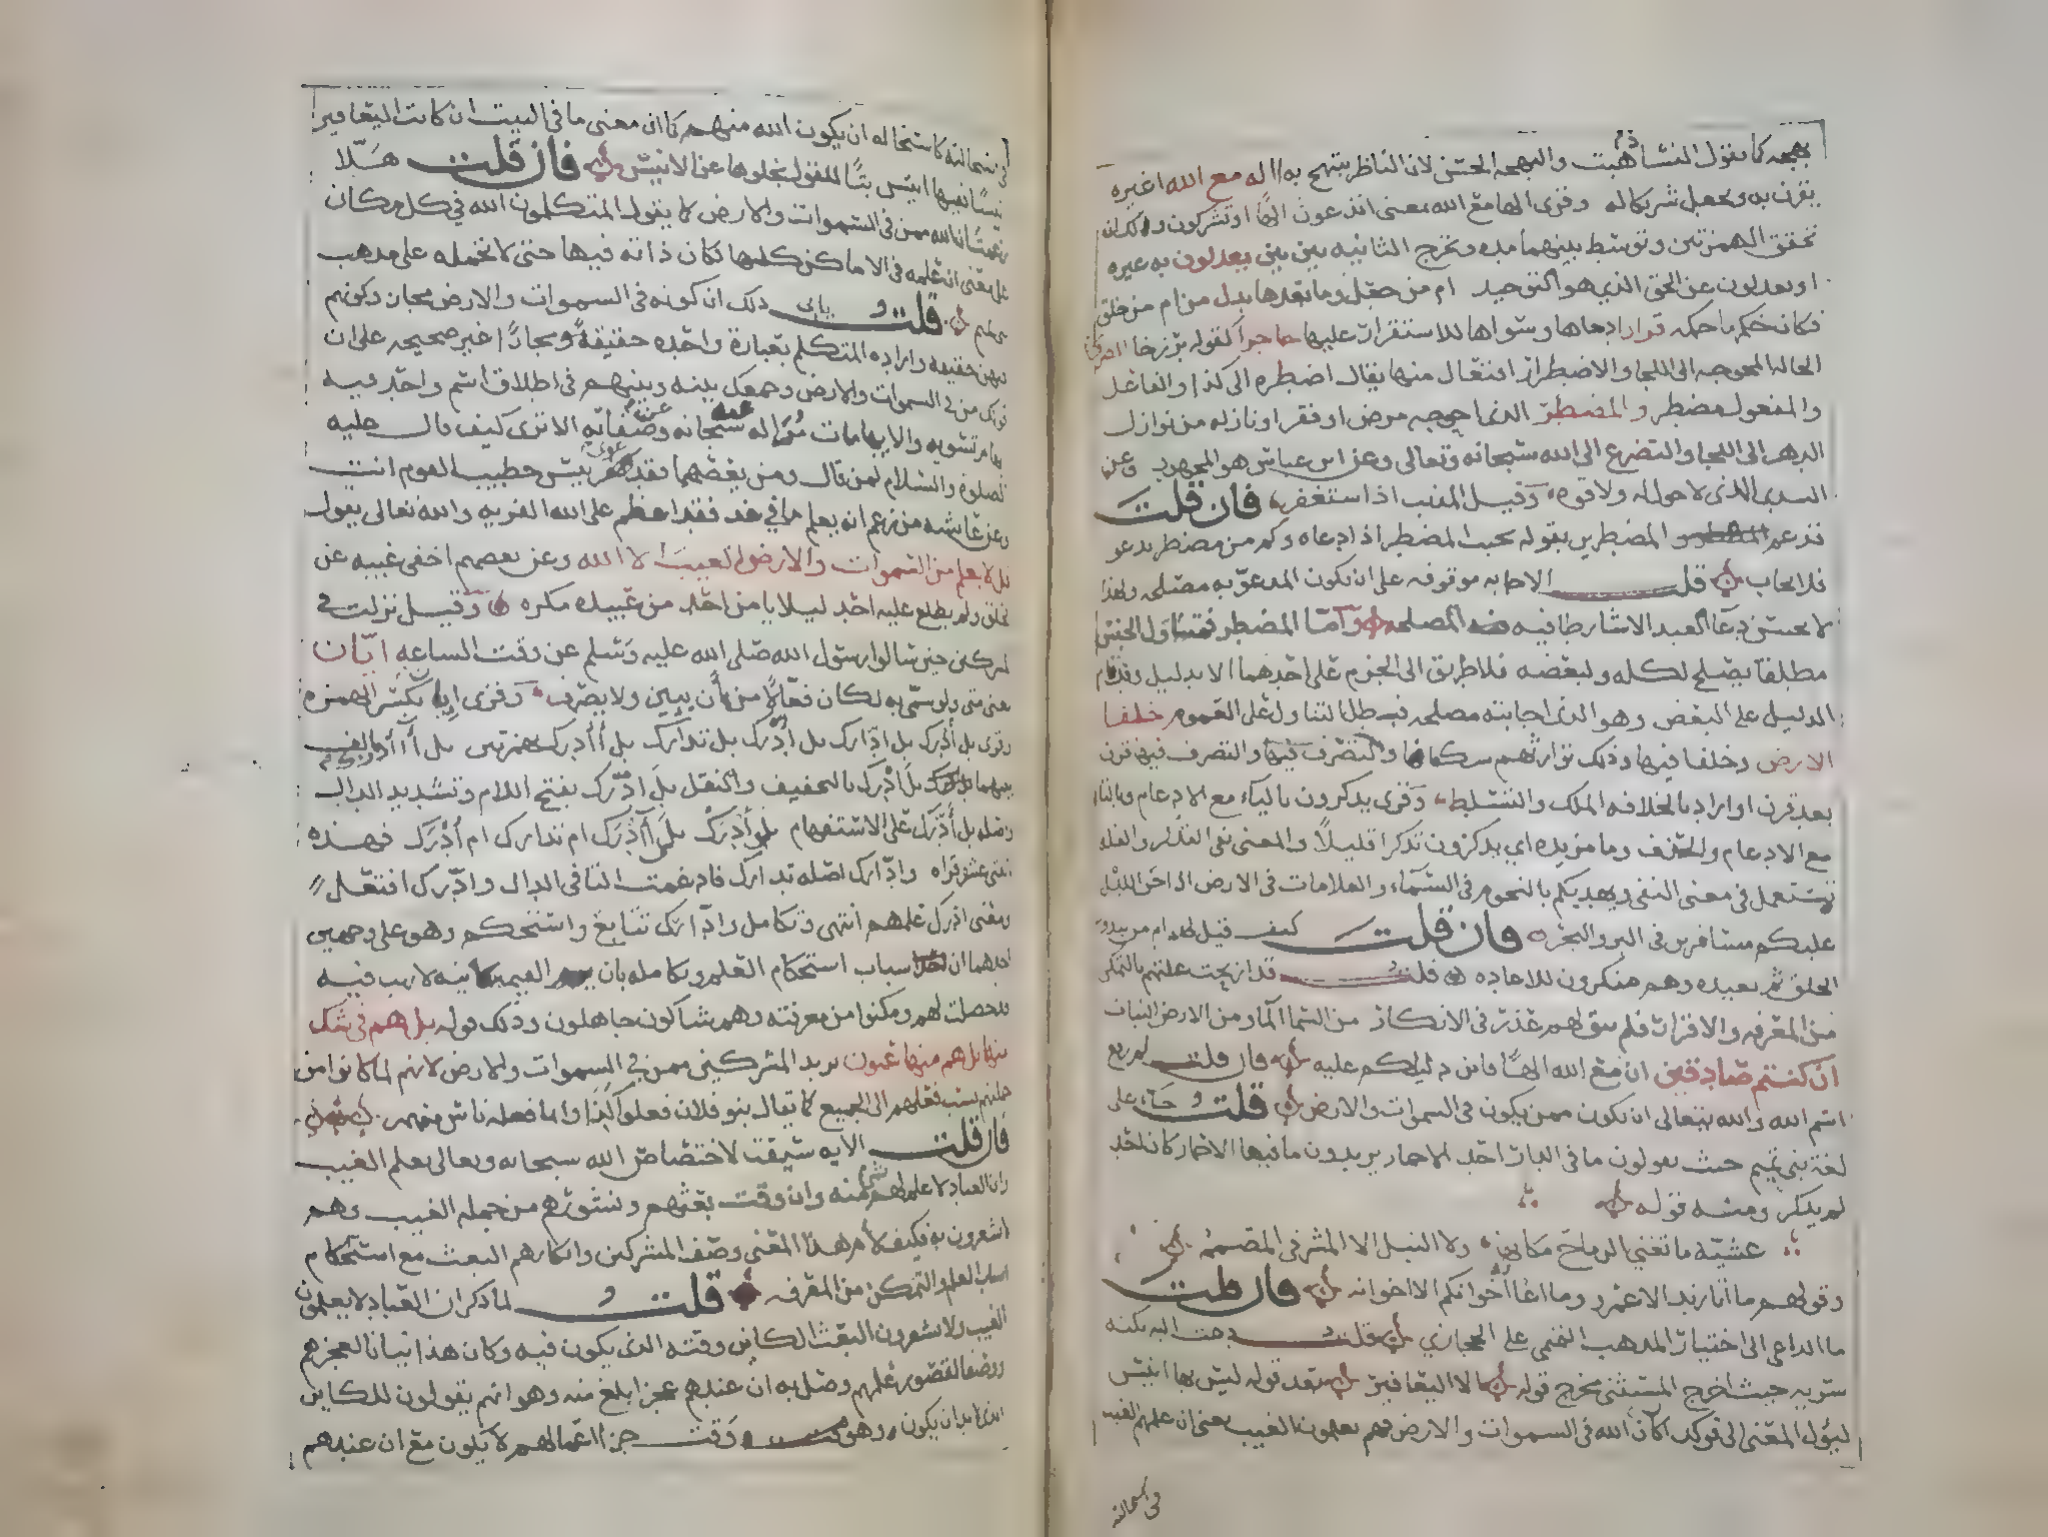 بهجه كما يقول النساء ذهبت والبهجه الحسن لان الناظر يبتهج به االه مع الله اغيره
يقرن به ويجعل شريكا له وقرى االها مع الله بمعنى اتدعون الها او تشركون ولك ان
تحقق الهمزتين وتوسط بينهما مده وتخرج الثانيه بين بين يعدلون به غيره
او يعدلون عن الحق الذي هو التوحيد ام من جعل وما بعدها بدل من ام من خلق
فكان حكمها حكمه قرارا دحاها وسواها للاستقرار عليها حاجزا كقوله برزخا
الحاله المحوجه الى اللجا والاضطرار افتعال منها يقال اضطره الى كذا والفاعل
والمفعول مضطر والمضطر الذي احوجه مرض او فقر او نازله من نوازل
الدهر الى اللجا والتضرع الى الله سبحانه وتعالى وعن ابن عباس هو المجهود وعن
السدى الذى لا حول له ولا قوه وقيل المذنب اذا استغفر فان قلت
قد عم المضطرين بقوله يجيب المضطر اذا دعاه وكم من مضطر يدعو
فلا يجاب قلت الاجابه موقوفه على ان يكون المدعو به مصلحه ولهذا
لا يحسن دعا العبد الا شارطا فيه المصلحه واما المضطر فمتناول للجنس
مطلقا يصلح لكله ولبعضه فلا طريق الى الجزم على احدهما الا بدليل وقد قام
الدليل على البعض وهو الذى اجابته مصلحه فبطل التناول على العموم خلفا
الارض وخلفا فيها وذلك توارثهم سكناها والتصرف فيها والتصرف فيها قرن
بعد قرن او اراد بالخلافه الملك والتسلط وقرى يذكرون بالياء مع الادغام وبالتا
مع الادغام والحذف وما مزيده اي يذكرون تذكرا قليلا والمعنى نفى التذكر والقله
تستعمل في معنى النفى ويهديكم بالنجوم فى السماء والعلامات فى الارض اذا جن الليل
عليكم مسافرين فى البر والبحر فان قلت كيف قيل لهم ام من يبدو
الخلق ثم يعيده وهم منكرون للاعاده قلت قد ازيحت علتهم بالتمكن
من المعرفه والاقرار فلم يبق لهم عذر فى الانكار من السما الما ومن الارض النبات
ان كنتم صادقين ان مع الله الها فاين دليلكم عليه فان قلت لم رفع
اسم الله والله يتعالى ان يكون ممن يكون فى السموات والارض قلت جاء على
لغة بنى تميم حيث يقولون ما فى الدار احد الا حمار يريدون ما فيها الا حمار كان احد
لم يذكر ومنه قوله
عشيه ما تغني الرماح مكانها ولا النبل الا المشرفى المصمم
وقولهم ما اتانى زيد الا عمرو وما اعانه اخوانكم الا اخوانه فان قلت
ما الداعى الى اختيار المذهب التميمى على الحجازي قلت دعت اليه نكته
سريه حيث اخرج المستثنى مخرج قوله الا اليعافير بعد قوله ليس بها انيس
ليؤل المعنى الى قولك ان كان الله فى السموات والارض فهم يعلمون الغيب يعنى ان علمهم الغيب
فى استحالته
فى استحالته كاستحاله ان يكون الله منهم كما ان معنى ما فى البيت ان كانت اليعافير
انيسا ففيها انيس بتا للقول بخلوها عن الانيس فان قلت هلا
زعمت ان الله ممن فى السموات والارض كما يقول المتكلمون الله في كل مكان
على معنى ان علمه فى الاماكن كلها فكان ذاته فيها حتى لا تحمله على مذهب
بنى تميم قلت يابى ذلك ان كونه فى السموات والارض مجاز وكونهم
فيهن حقيقه واراده المتكلم بعبارة واحده حقيقة ومجازا غير صحيحه على ان
قولك من فى السموات والارض وجمعك بينه وبينهم فى اطلاق اسم واحد فيه
ايهام تسويه والايهامات مزاله عنه سبحانه وعن صفاته الا ترى كيف قال عليه
الصلوة والسلام لمن قال ومن يعصهما فقد غوى بيس خطيب القوم انت
وعن عائشه من زعم انه يعلم ما في غد فقد اعظم على الله الفريه والله تعالى يقول
قل لا يعلم من السموات والارض الغيب الا الله وعن بعضهم اخفى غيبه عن
الخلق ولم يطلع عليه احد ليلا يامن احد من عبيده مكره وقيل نزلت في
المشركين حين سالوا رسول الله صلى الله عليه وسلم عن وقت الساعه ايان
بمعنى متى ولو سمى به لكان فعالا من ان يبين ولا يصرف وقرى ايان بكسر الهمزه
وقرى بل ادرك بل ادارك بل ادرك بل تدارك بل أأدرك بهمزتين بل آأدرك بالف
بينهما بل ادرك بالتخفيف والنقل بل ادرك بفتح اللام وتشديد الدال
واصله بل أدرك على الاستفهام بلى ادرك بلى أأدرك ام تدارك ام أدرك فهذه
اثنتى عشر قراه وادارك اصله تدارك فادغمت التا فى الدال وادرك افتعل
ومعنى ادرك علمهم انتهى وتكامل وادارك تتابع واستحكم وهو على وجهين
احدهما ان اسباب استحكام العلم وتكامله بان القيمه كاينه لا ريب فيه
قد حصلت لهم ومكنوا من معرفته وهم شاكون جاهلون وذلك قوله بل هم فى شك
منها بل هم منها عمون يريد المشركين ممن في السموات والارض لانهم لما كانوا من
جملتهم نسب فعلهم الى الجميع كما يقال بنو فلان فعلوا كذا وانما فعله ناس منهم
فان قلت الايه سيقت لاختصاص الله سبحانه وتعالى بعلم الغيب
وان العباد لا علم لهم بشى منه وان وقت بعثهم ونشورهم من جمله الغيب وهم
لا يشعرون به فكيف لاءم هذا المعنى وصف المشركين وانكارهم البعث مع استحكام
اسباب العلم والتمكن من المعرفه قلت لما ذكر ان العباد لا يعلمون
الغيب ولا يشعرون البعث الكاين وقته الذى يكون فيه وكان هذا بيانا لعجزهم
ووصفا لقصور علمهم وصل به ان عندهم عجزا ابلغ منه وهو انهم يقولون للكاين
الذى لا بد ان يكون وهو وقت جزا اعمالهم لا يكون مع ان عندهم